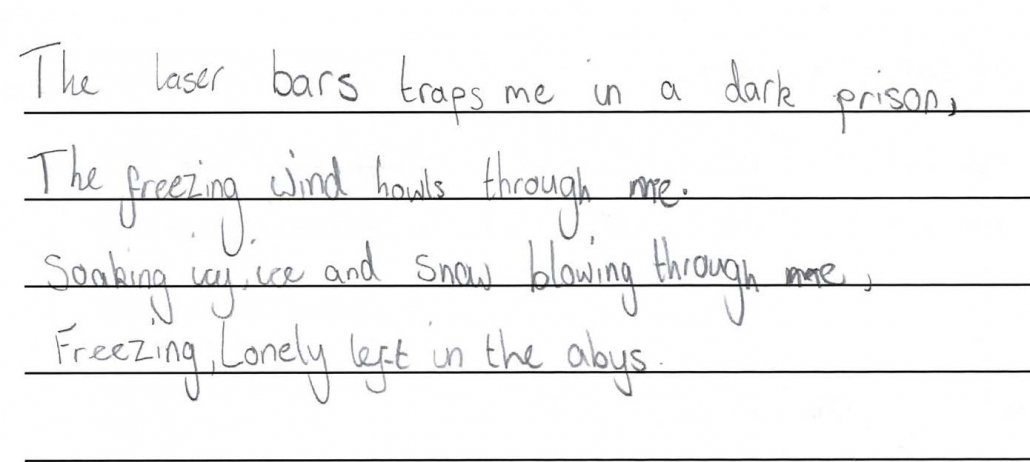 The laser bars traps me in a dark prison,
The freezing wind howls through me.
Soaking icy, ice and snow blowing through me,
Freezing, Lonely left in the abys.